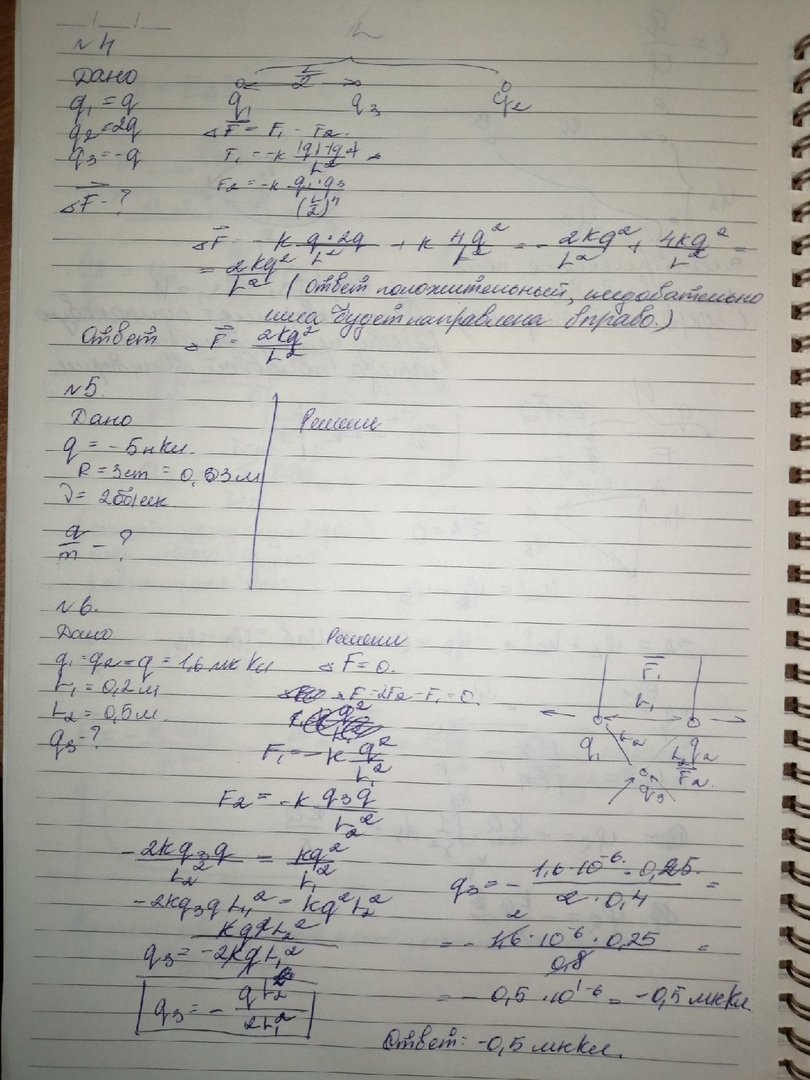 L
N4
Дано
q₁ = q
q₂ = 2q
q₃ = -q
ΔF - ?
L/2
q₁ q₃ q₂
ΔF = F₁ - F₂.
F₂ = -k q₁·q₃ / (L/2)²
ΔF = -k q·2q / L² + k 4q² / L² = - 2kq² / L² + 4kq² / L² =
= 2kq² / L² (Ответ положительный, следовательно
сила будет направлена вправо.)
Ответ F = 2kq² / L²
N5.
Дано
Решение
q = -5нКл.
R = 3cm = 0,03м
q/m - ?
N6.
Дано
Решение
q₁ = q₂ = q = 1,6 мкКл
L₁ = 0,2м
L₂ = 0,5м.
q₃ - ?
ΔF = 0.
F = 2F₂ - F₁ = 0.
F₁ = -k q² / L₁²
F₂ = -k q₃q / L₂²
F₁
L₁
q₁ L₂ L₂ q₂
F₂.
q₃
- 2kq₃q / L₂² = kq² / L₁²
-2kq₃qL₁² = kq²L₂²
q₃ = kq²L₂² / -2kqL₁²
q₃ = - qL₂² / 2L₁²
q₃ = - 1,6·10⁻⁶·0,25 / 2·0,4 =
= - 1,6·10⁻⁶·0,25 / 0,8 =
= - 0,5·10⁻⁶ = -0,5 мкКл
Ответ: -0,5 мкКл.